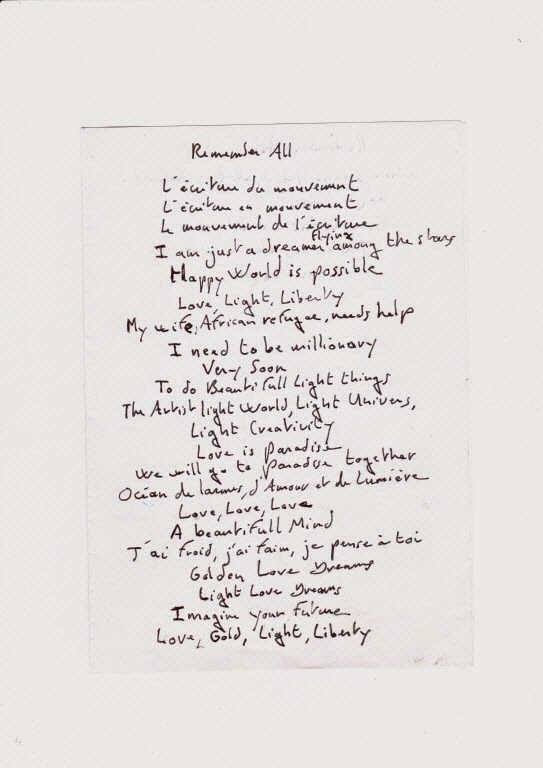 Remember All
L'écriture du mouvement
L'écriture en mouvement
Le mouvement de l'écriture
I am just a dreamer flying among the stars
Happy World is possible
Love, Light, Liberty
My wife, African refugee, needs help
I need to be millionary
Very Soon
To do Beautifull Light things
The Artist light World, Light Univers,
Light Creativity
Love is paradise
We will go to paradise together
Océan de larmes, d'Amour et de Lumière
Love, Love, Love
A beautifull Mind
J'ai froid, j'ai faim, je pense à toi
Golden Love Dreams
Light Love Dreams
Imagine your future
Love, Gold, Light, Liberty